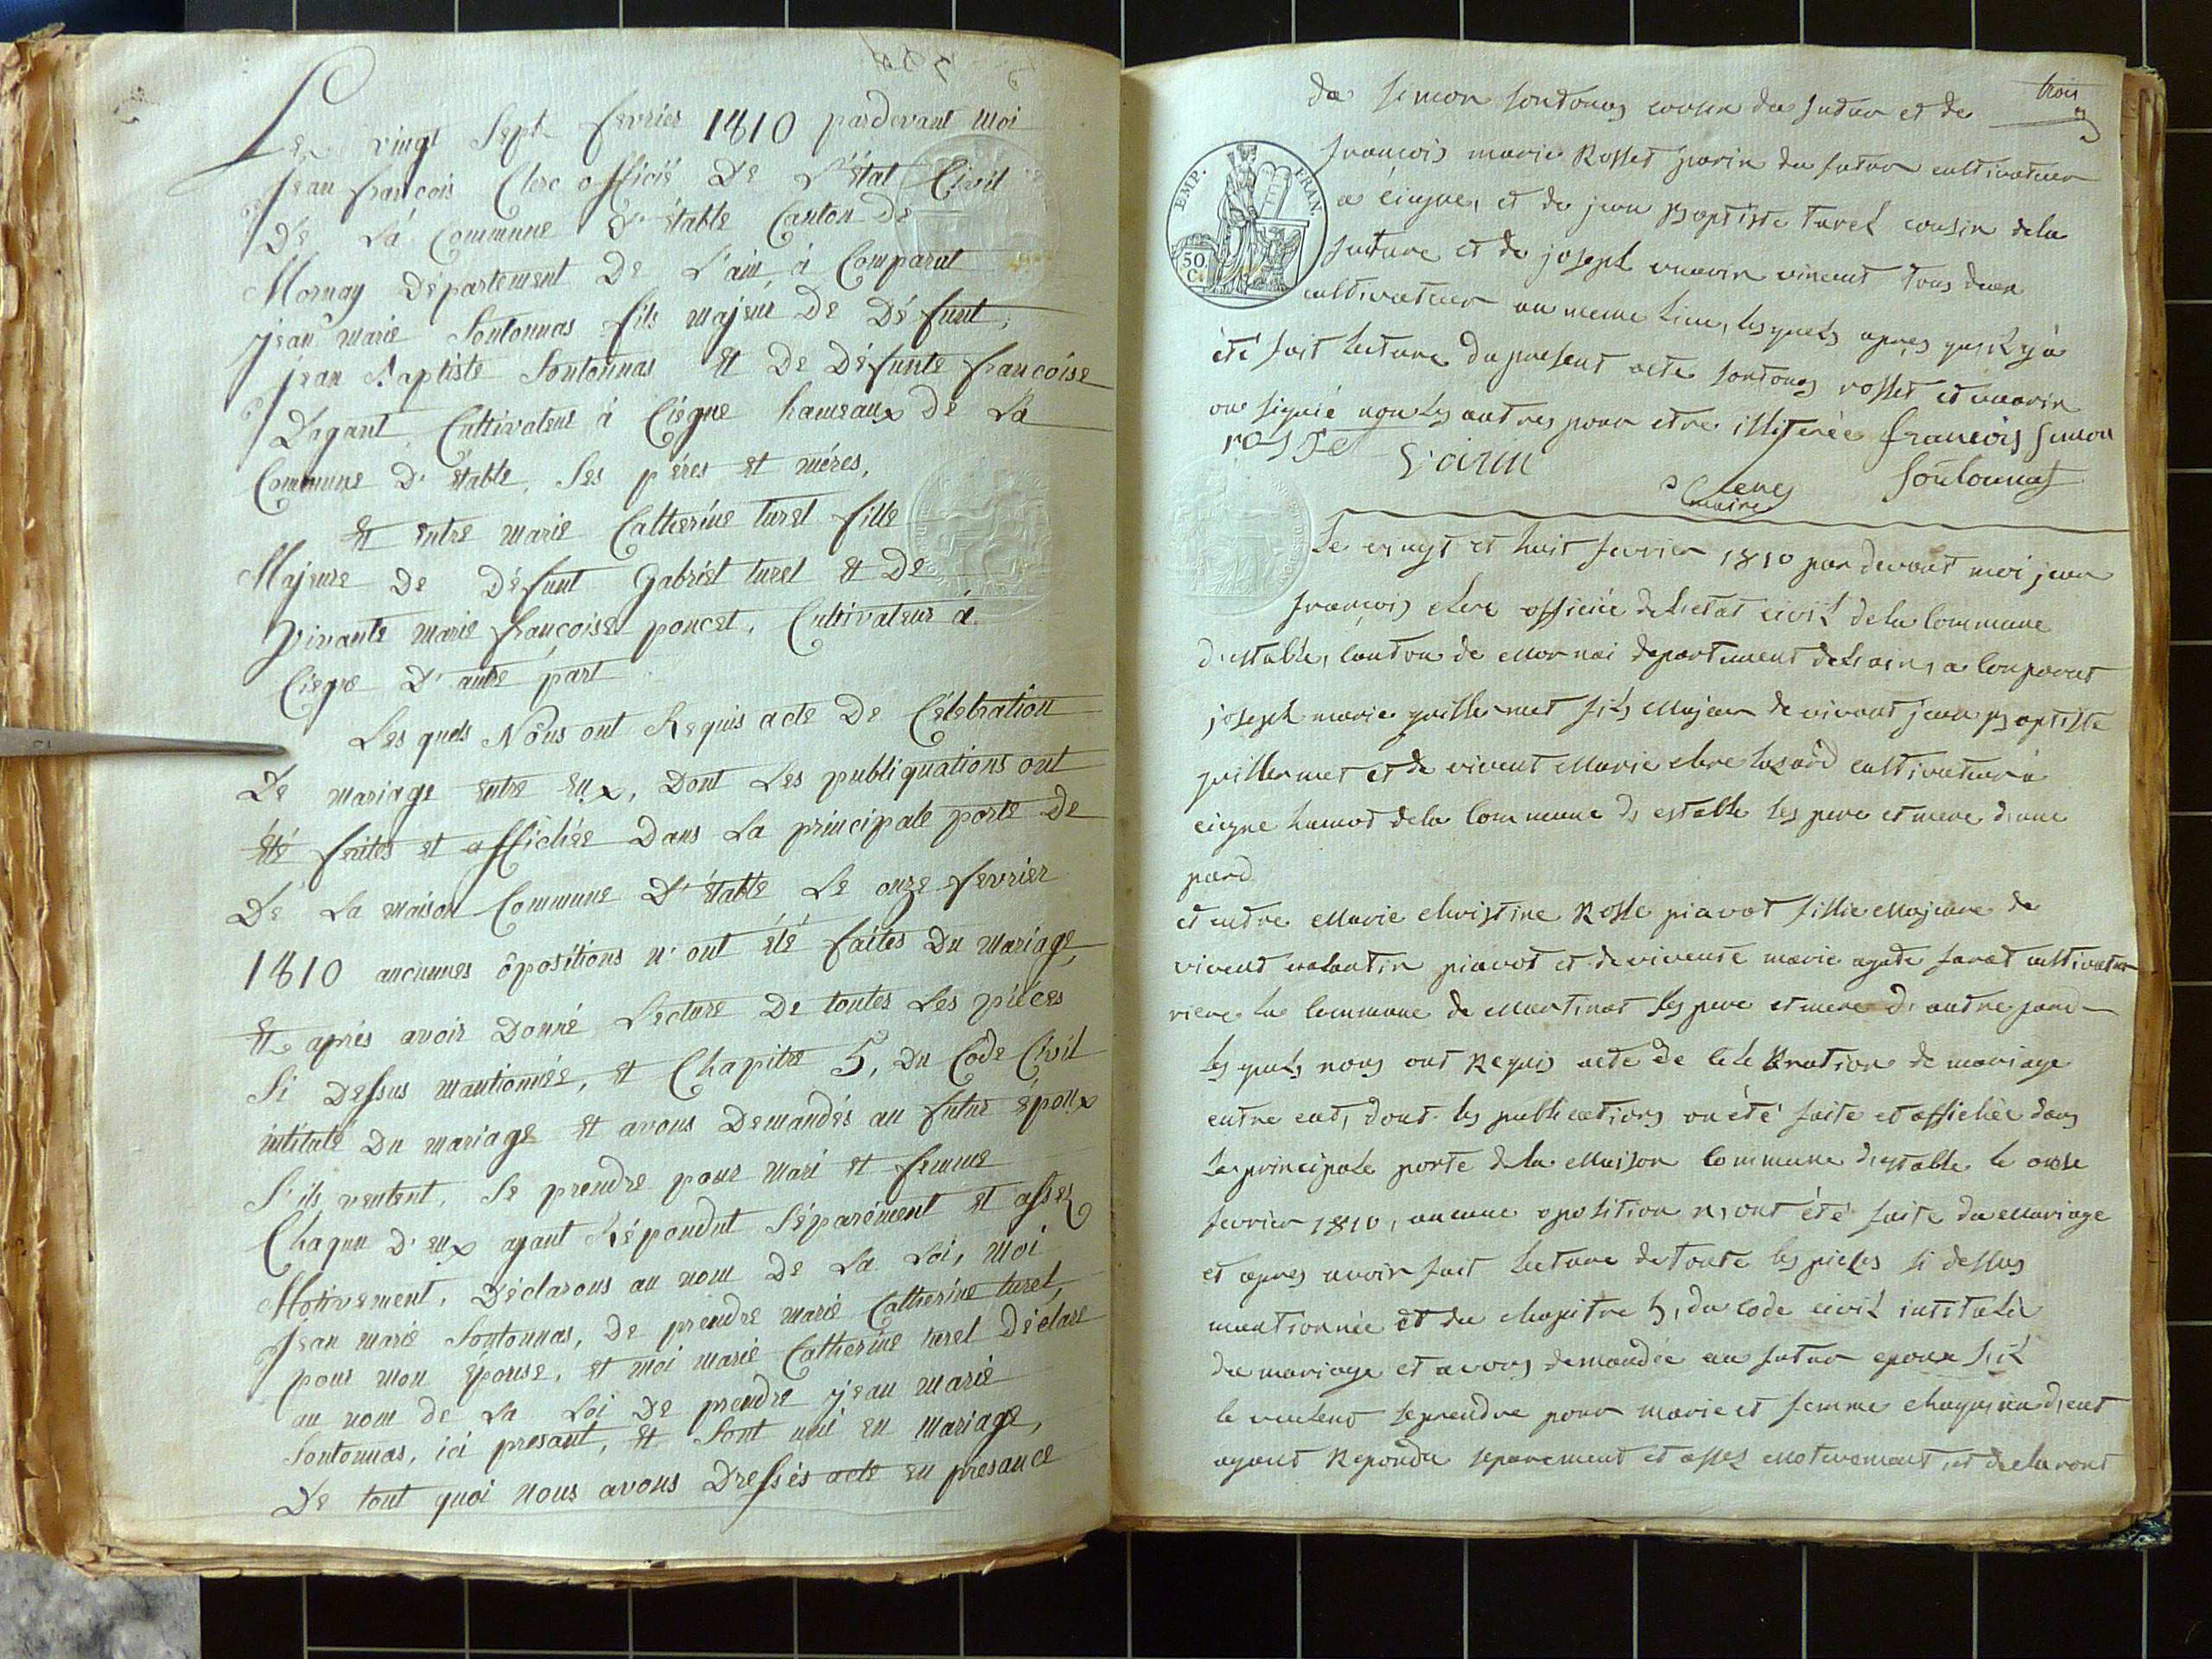 Le vingt Sept fevrier 1810 pardevant moi
Jean francois Clerc officié De L'état Civil
De La Commune D'étable Canton De
Mornay Département De L'ain à Comparut
jean marie Sontonnas fils majeur De Défunt,
jean Baptiste Sontonnas Et De Défunte francoise
Dagant, Cultivateur à Ciégne hameaux de La
Commune D'étable, Ses péres et méres,
Et entre marie Catherine turel fille
Majeure De Défunt Gabriel turel Et De
Vivante marie francoise poncet, Cultivateur à
Ciegne D'autre part
Les quels Nous ont Requis acte De Célebration
De mariage entre eux, Dont Les publiquations ont
été feites et affichée Dans La principale porte De
De La maison Commune D'étable Le onze fevrier
1810 aucunnes ôpositions n'ont été faites Du mariage,
Et aprés avoir Donné Lecture De toutes Les piéces
Si Dessus mantionnée, et Chapitre 5, Du Côde Civil
intitulé Du mariage Et avons Demandés au futur époux
S'ils veulent, Se prendre pour mari et femme
Chaqun D'eux ayant Répondut Séparément et assez
Motivement, Déclarons au nom De La Loi, moi
Jean marie Sontonnas, De prendre marie Catherine turel,
pour mon épouse, et moi marie Catherine turel Déclare
au nom de La Loi De prendre jean marie
Sontonnas, ici presant, Et Sont uni en mariage,
De tout quoi nous avons Dressés acte en présance
trois
de simon sontonas cousin du futur et de
francois marie Rosset parin du futur cultivateur
a ciegne, et de jean Baptiste turel cousin dela
future et de joseph vuarin vincent tous deux
cultivateur au meme lieu, lesquels apres quil y à
été fait lecture du present acte sontonas rosset et vuarin
on signié non les autres pour etre illiterée francois simon
EMP. FRAN.
50 C.
rosset varin
Clerc Sontounas
maire
Le vingt et huit fevrier 1810 par devant moi jean
françois clerc officiée de letat civil dela Commune
d'estable, Canton de Mornai departement de lain, a Comparut
joseph marie guillermet fils Majeur de vivant jean Baptiste
guillermet et de vivent Marie clere lazard cultivateur à
ciegne hamot dela Commune d'estable ses pere et mere d'une
pard
et entre Marie Christine Rosse piavot fillie Majeure de
vivent valantin piavot et de vivente marie agate
la Commune de Martinat ses pere et mere d'autre pard
les quels nous ont Requis acte de Celebration de mariage
entre eut, dont les publications on été faite et affichée dans
la principale porte dela Maison Commune d'estable le onse
fevrier 1810, aucune oposition n'ont été faite du Mariage
et apres avoir fait lecture de toute les pieces si dessus
mantionnée et du chapitre 5, du code civil intitulée
du mariage et avons demandée au futur epoux sil
le veulent seprendre pour marie et femme chaqu'un d'eut
ayant Repondu separement et assez Motivemant, et declaront